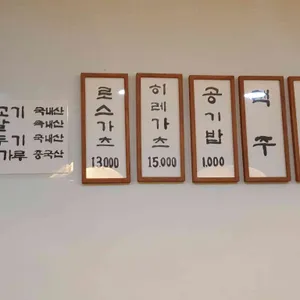 고기 국내산
쌀 국내산
국내산
가루 중국산
로스가츠
13.000
히레가츠
15.000
공기밥
1.000
맥주